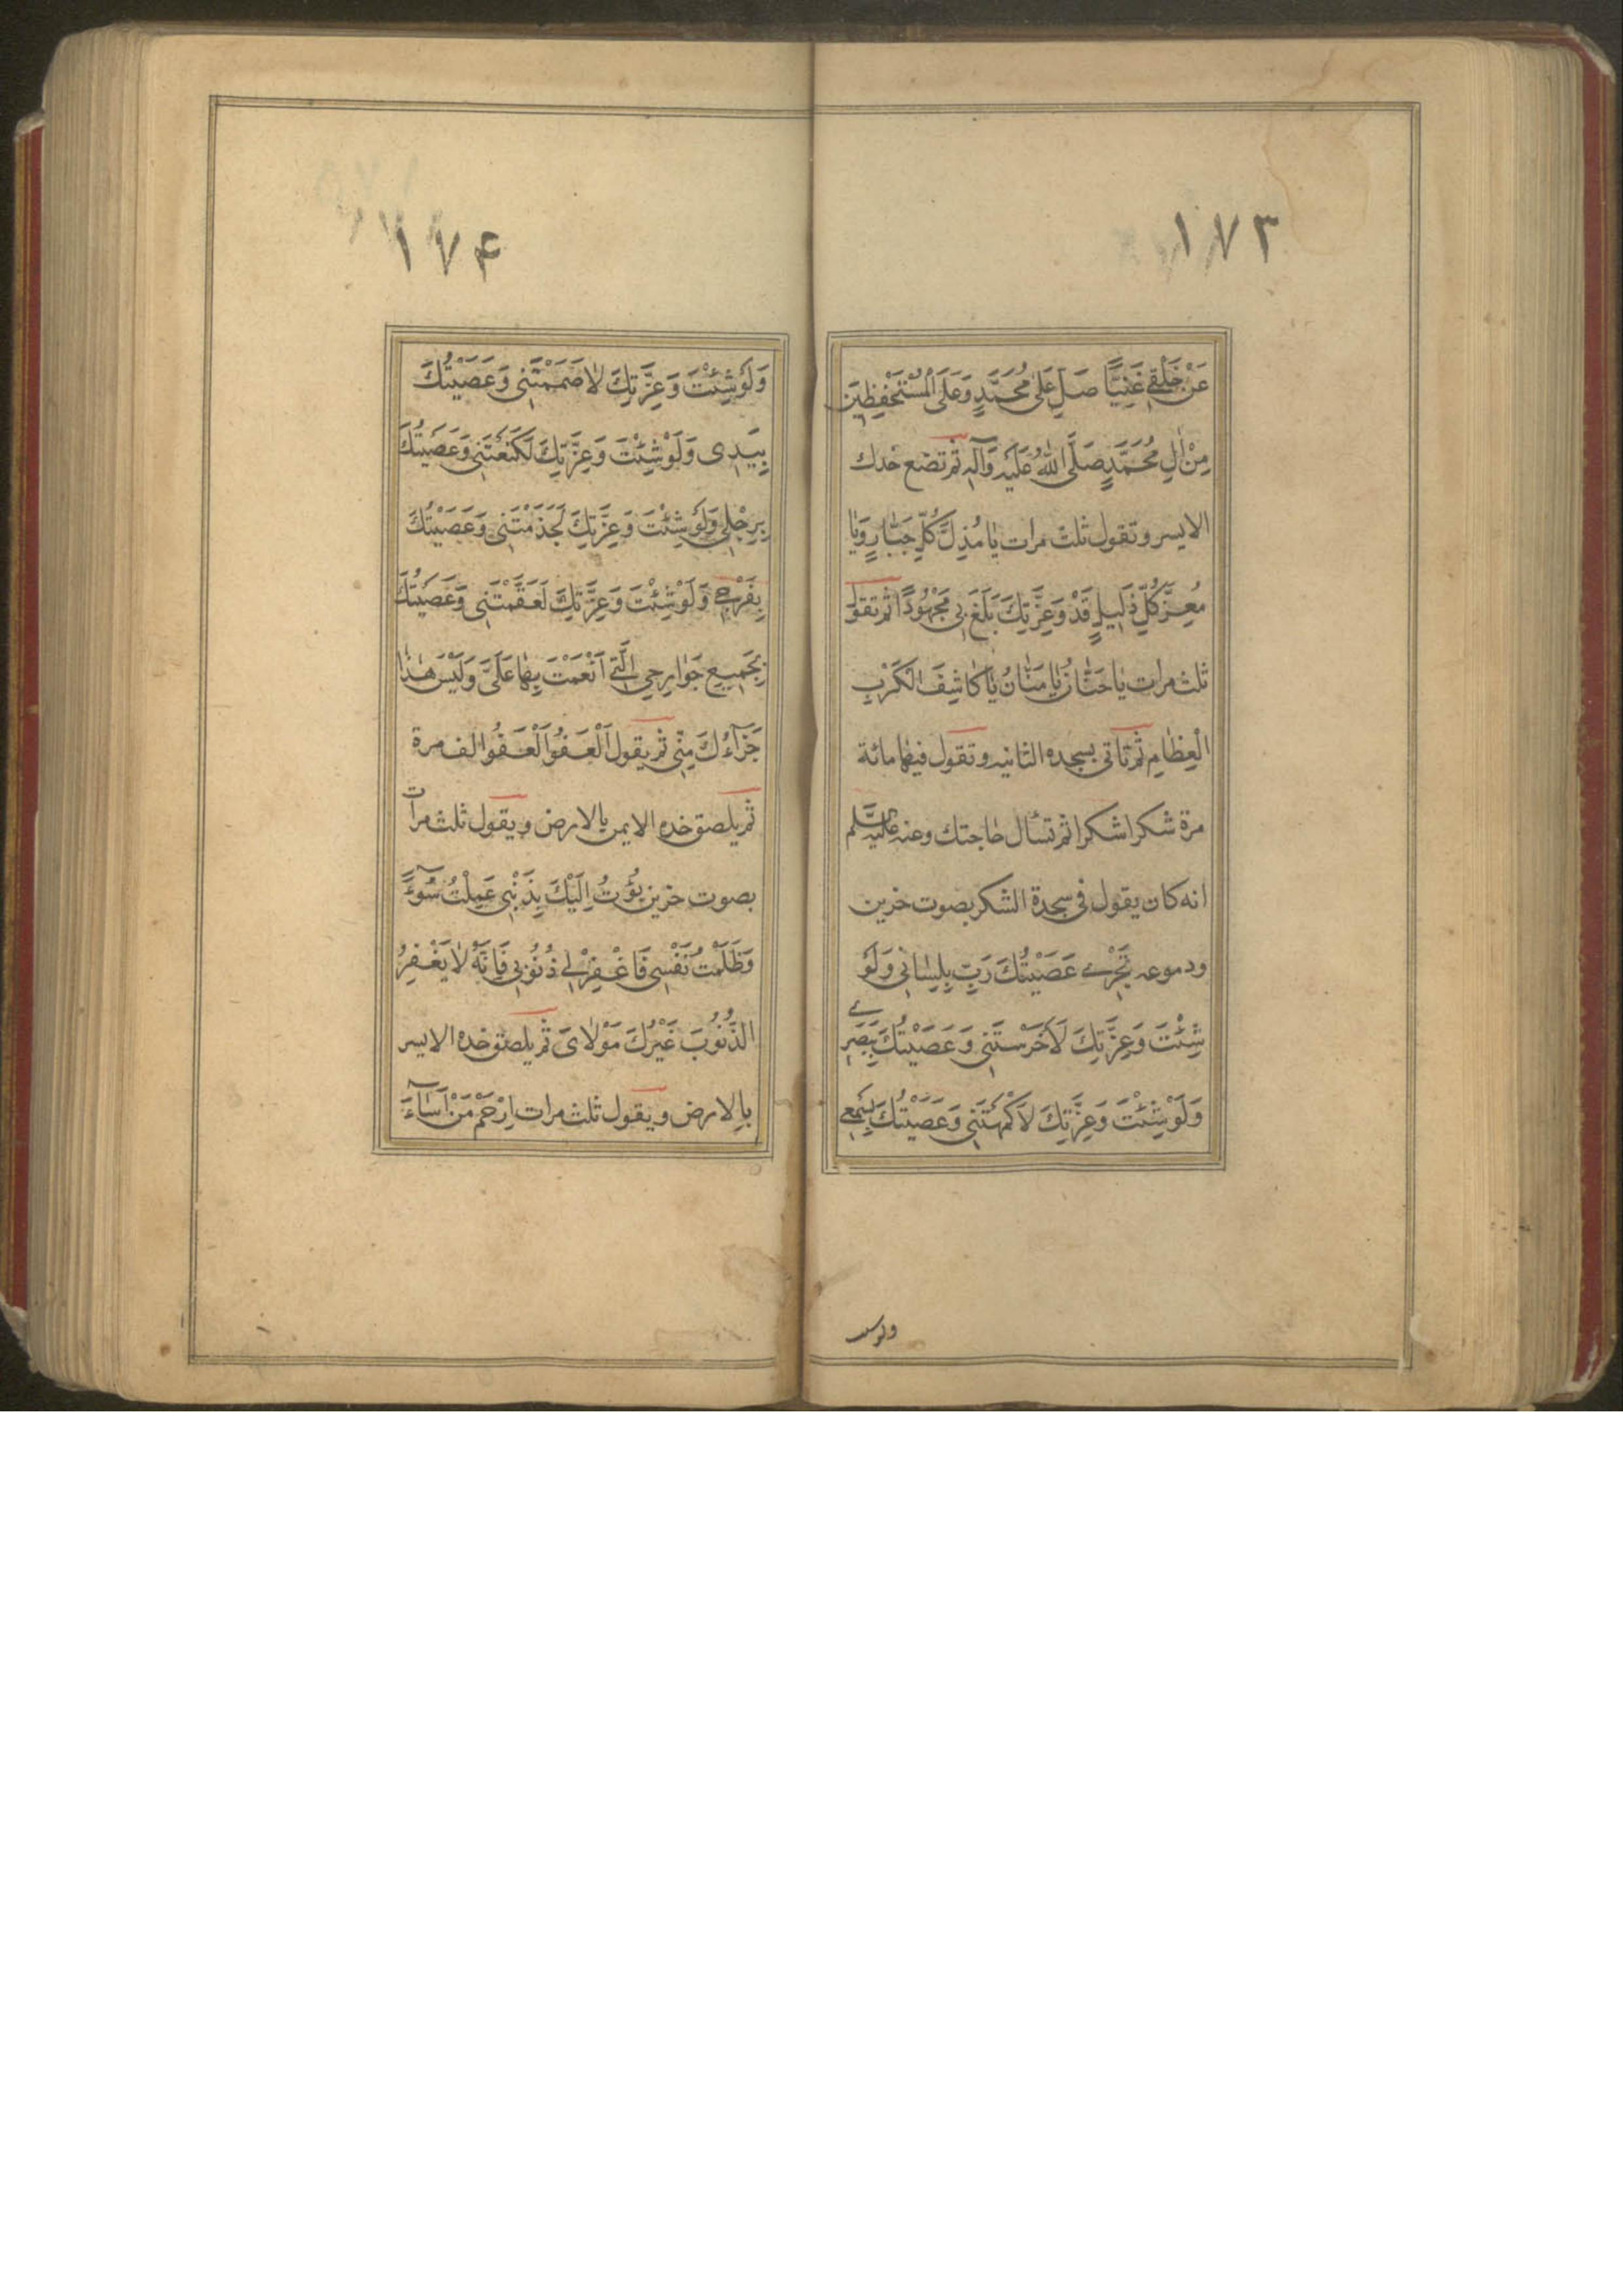 ١٧٣
عَنْ خَلْقِي غَنِيًّا صَلِّ عَلٰى مُحَمَّدٍ وَعَلَى الْمُسْتَحْفِظِينَ
مِنْ اٰلِ مُحَمَّدٍ صَلَّى اللّٰهُ عَلَيْهِ وَآلِهِ ثم تضع خدك
الايسر وتقول ثلث مرات يٰا مُذِلَّ كُلِّ جَبّٰارٍ وَيٰا
مُعِزَّ كُلِّ ذَلِيلٍ قَدْ وَعِزَّتِكَ بَلَغَ بِي مَجْهُودًا ثم تقول
ثلث مرات يٰا حَنّٰانُ يٰا مَنّٰانُ يٰا كٰاشِفَ الْكَرْبِ
الْعِظٰامِ ثم تاتى بسجده الثانيه وتقول فيها مائة
مرة شكرا شكرا ثم تسأل حاجتك وعنه عليه السلم
انه كان يقول فى سجدة الشكر بصوت حزين
ودموعه تَجْرِي عَصَيْتُكَ رَبِّ بِلِسٰانِي وَلَوْ
شِئْتَ وَعِزَّتِكَ لَأَخْرَسْتَنِي وَعَصَيْتُكَ بِبَصَرِي
وَلَوْ شِئْتَ وَعِزَّتِكَ لَأَكْمَهْتَنِي وَعَصَيْتُكَ بِسَمْعِي
ولوشئت
١٧۴
وَلَوْ شِئْتَ وَعِزَّتِكَ لَاَصْمَمْتَنِي وَعَصَيْتُكَ
بِيَدِى وَلَوْ شِئْتَ وَعِزَّتِكَ لَكَنَعْتَنِي وَعَصَيْتُكَ
بِرِجْلِي وَلَوْ شِئْتَ وَعِزَّتِكَ لَجَذَمْتَنِي وَعَصَيْتُكَ
بِفَرْجِي وَلَوْ شِئْتَ وَعِزَّتِكَ لَعَقَمْتَنِي وَعَصَيْتُكَ
بِجَمِيعِ جَوٰارِحِي الَّتِي اَنْعَمْتَ بِهٰا عَلَيَّ وَلَيْسَ هٰذٰا
جَزٰآءُكَ مِنِّي ثم يقول اَلْعَفْوُ اَلْعَفْوُ الف مرة
ثم يلصق خده الايمن بالارض ويقول ثلث مرات
بصوت حزين بُؤْتُ اِلَيْكَ بِذَنْبِي عَمِلْتُ سُوٓءًا
وَظَلَمْتُ نَفْسِي فَاغْفِرْ لِي ذُنُوبِي فَاِنَّهُ لٰا يَغْفِرُ
الذُّنُوبَ غَيْرُكَ مَوْلٰاىَ ثم يلصق خده الايسر
بالارض ويقول ثلث مرات اِرْحَمْ مَنْ اَسٰآءَ